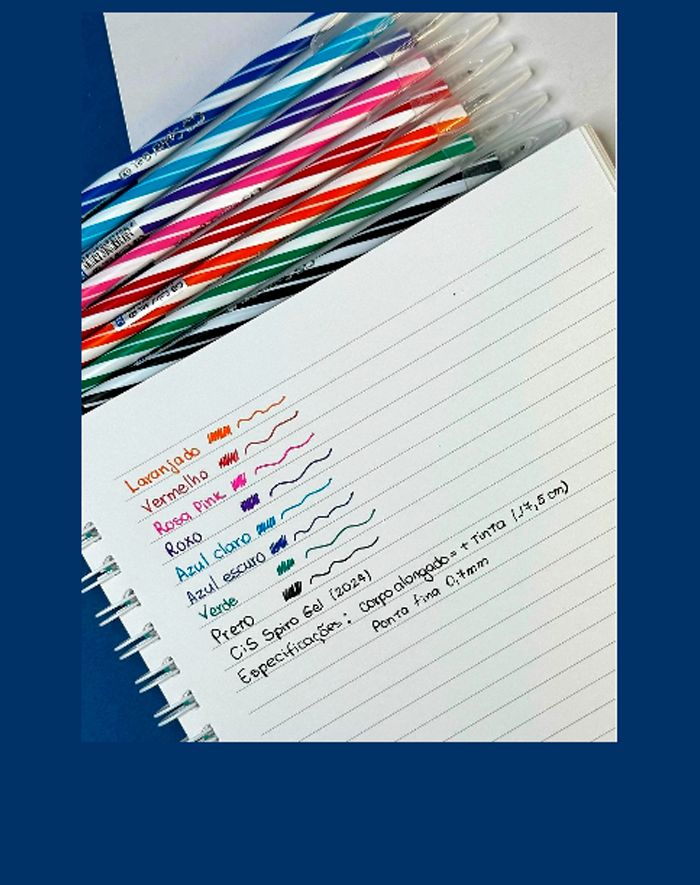 Laranjado
Vermelho
Rosa Pink
Roxo
Azul claro
Azul escuro
Verde
Preto
CiS Spiro Gel (2024)
Especificações: corpo alongado = + Tinta (17,5 cm)
Ponta fina 0,7mm